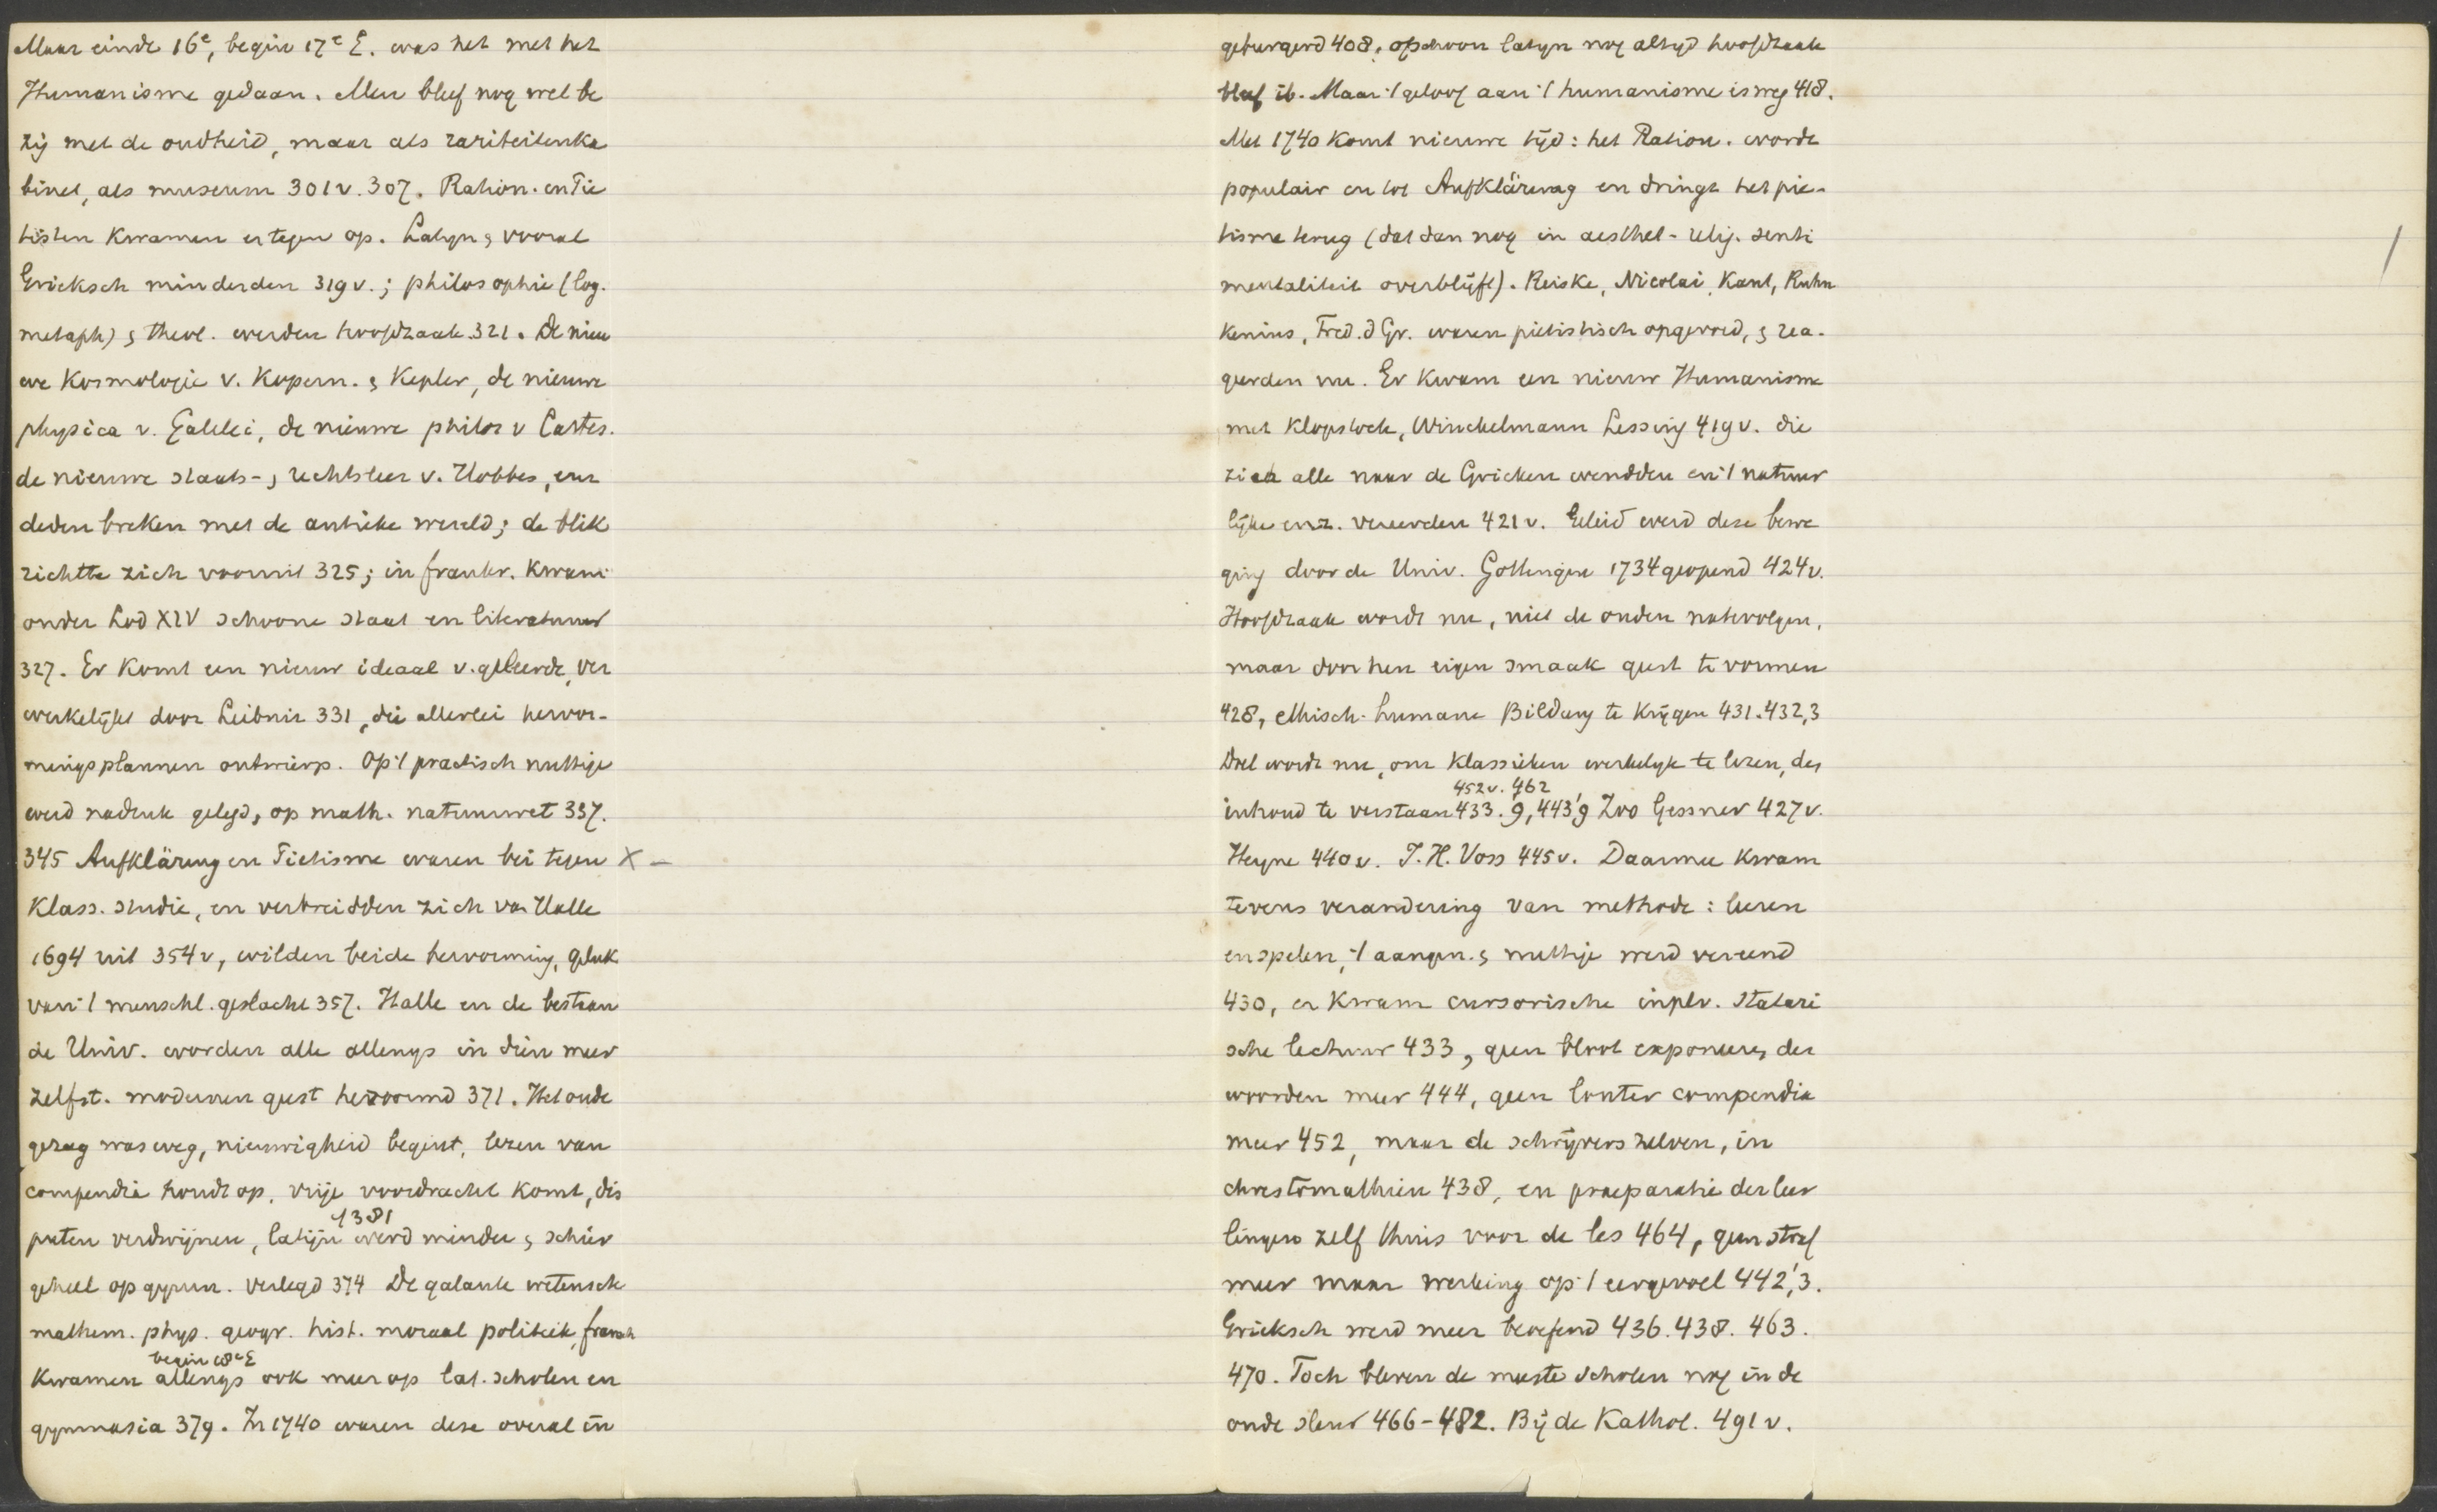 Maar einde 16e, begin 17e E. was het met het
Humanisme gedaan. Men bleef nog wel be
zig met de oudheid, maar als rariteitenka
binet, als museum 301v. 307. Ration. en Pie
tisten kwamen er tegen op. Latyn & vooral
Grieksch minderden 319v.; philosophie (log.
metaph) & theol. werden hoofdzaak 321. De nieu
we Kosmologie v. Kopern. & Kepler, de nieuwe
physica v. Galilei, de nieuwe philos v Cartes.
de nieuwe staats- & rechtsleer v. Hobbes, enz
deden breken met de antieke wereld; de blik
richtte zich vooruit 325; in frankr. kwam
onder Lod XIV schoone staat en literatuur
327. Er komt een nieuw ideaal v. geleerde, ver
werkelijkt door Leibniz 331, die allerlei hervor-
mingsplannen ontwierp. Op 't practisch nuttige
werd nadruk gelegd, op math. natuurwet 337.
345 Aufklärung en Pietisme waren bei tegen X –
Klass. studie, en verbreidden zich van Halle
1694 uit 354v, wilden beide hervorming, geluk
van 't menschl. geslacht 357. Halle en de bestaan
de Univ. worden alle allengs in dien meer
zelfst. modernen geest hervormd 371. Het oude
gezag was weg, nieuwigheid begint, lezen van
compendia houdt op, vrije voordracht komt, dis
puten verdwijnen, latijn werd minder & schier
4381
geheel op gymn. verlegd 374 De galante wetensch
mathem. phys. geogr. hist. moraal politiek, fransch
begin 18e E
kwamen allengs ook meer op lat. scholen en
gymnasia 379. In 1740 waren deze overal in
geburgerd 408, ofschoon latyn nog altyd hoofdzaak
bleef ib. Maar 't geloof aan 't humanisme is weg 418.
Met 1740 komt nieuwe tijd: het Ration. wordt
populair en tot Aufklärung en dringt het pie-
tisme terug (dat dan nog in aesthet- relig. senti
mentaliteit overblijft). Reiske, Nicolai, Kant, Ruhn
kenius, Fred. d Gr. waren piëtistisch opgevoed, & rea-
geerden nu. Er kwam een nieuw Humanisme
met Klopstock, Winckelmann Lessing 419v. die
zich alle naar de Grieken wendden en 't natuur
lijke enz. vereerden 421v. Geleid werd deze bewe
ging door de Univ. Gottingen 1734 geopend 424v.
Hoofdzaak wordt nu, niet de ouden natevolgen,
maar door hen eigen smaak geest te vormen
428, ethisch-humane Bildung te krijgen 431.432,3
Doel wordt nu, om klassieken werkelijk te lezen, den
452v. 462
inhoud te verstaan 433.9, 443'9 Zoo Gessner 427v.
Heyne 440v. J.H. Voss 445v. Daarmee kwam
tevens verandering van methode: leeren
en spelen, 't aangen. & nuttige werd vereend
430, er kwam cursorische inplv. statari
sche lectuur 433, geen bloot exponeeren der
woorden meer 444, geen louter compendia
meer 452, maar de schrijvers zelven, in
chrestomathien 438, en praeparatie der leer
lingen zelf thuis voor de les 464, geen straf
meer maar werking op 't eergevoel 442',3.
Grieksch werd meer beoefend 436. 438. 463.
470. Toch bleven de meeste scholen nog in de
oude sleur 466-482. Bij de Kathol. 491v.